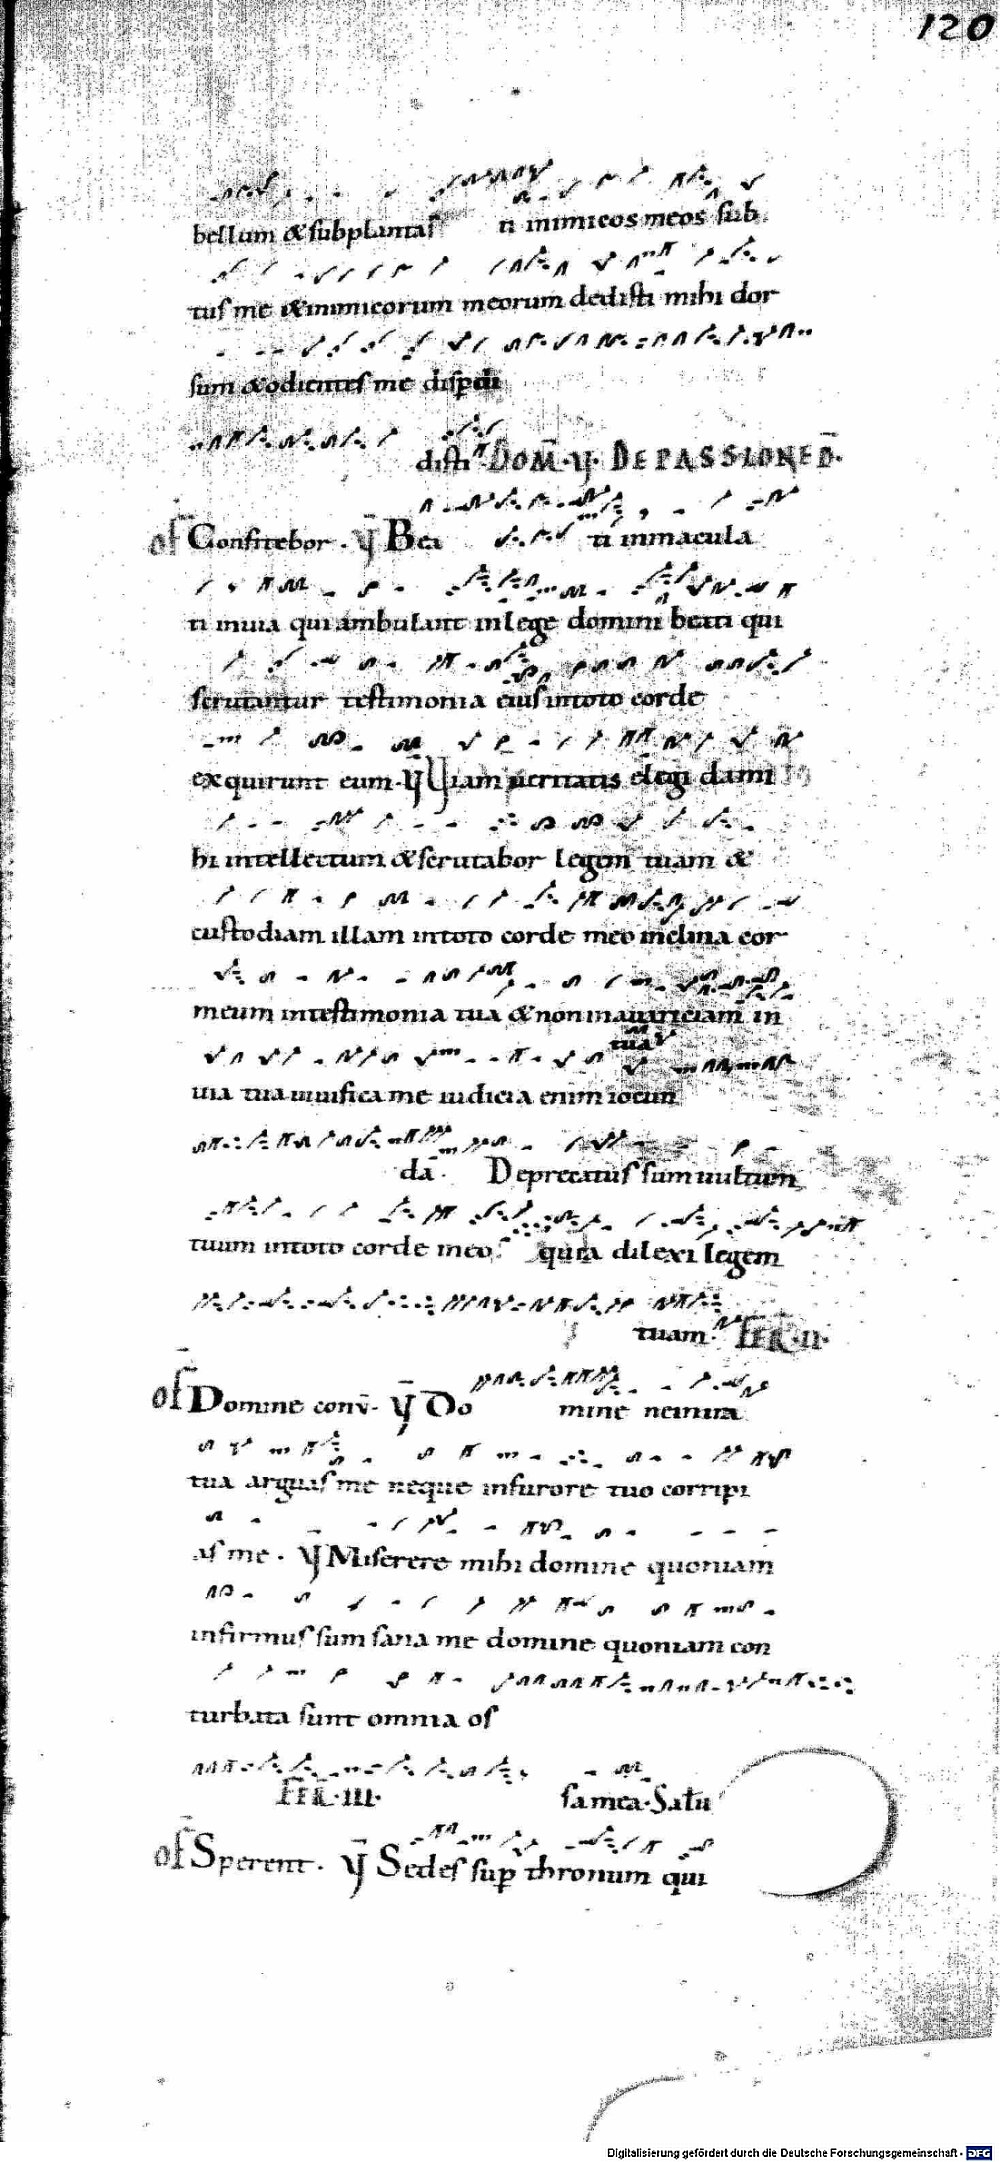 120
bellum & subplantas ti inimicos meos sub
tus me & inimicorum meorum dedisti mihi dor
sum & odientes me disperdi
disti DOM̄·V· DE PASSIONE D̄.
of̄ Confitebor. V̄ Bea ti inmacula
ti in uia qui ambulant in lege domini beati qui
scrutantur testimonia eius in toto corde
exquirunt eum. V̄ Viam ueritatis elegi da mi
hi intellectum & scrutabor legem tuam &
custodiam illam in toto corde meo inclina cor
meum in testimonia tua & non in auariciam in
tua
uia tua uiuifica me iudicia enim iocun
da. Deprecatus sum uultum
tuum in toto corde meo quia dilexi legem
tuam. FER̄·II·
of̄ Domine conv̄. V̄ Do mine ne in ira
tua arguas me neque in furore tuo corripi
as me. V̄ Miserere mihi domine quoniam
infirmus sum sana me domine quoniam con
turbata sunt omnia os
FER̄·III· sa mea. Saluū
of̄ Sperent. V̄ Sedes sup thronum qui
Digitalisierung gefördert durch die Deutsche Forschungsgemeinschaft - DFG